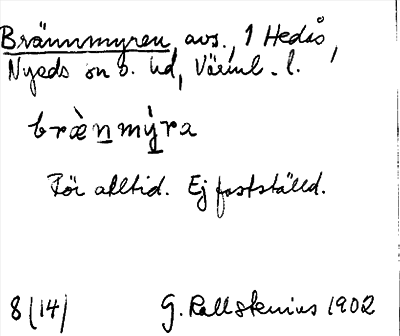 Brännmyren, avs., 1 Hedås,
Nyeds sn o. hd, Värml. l.
bræ̀nmýra
För alltid. Ej fastställd.
8 (14) G. Kallstenius 1902